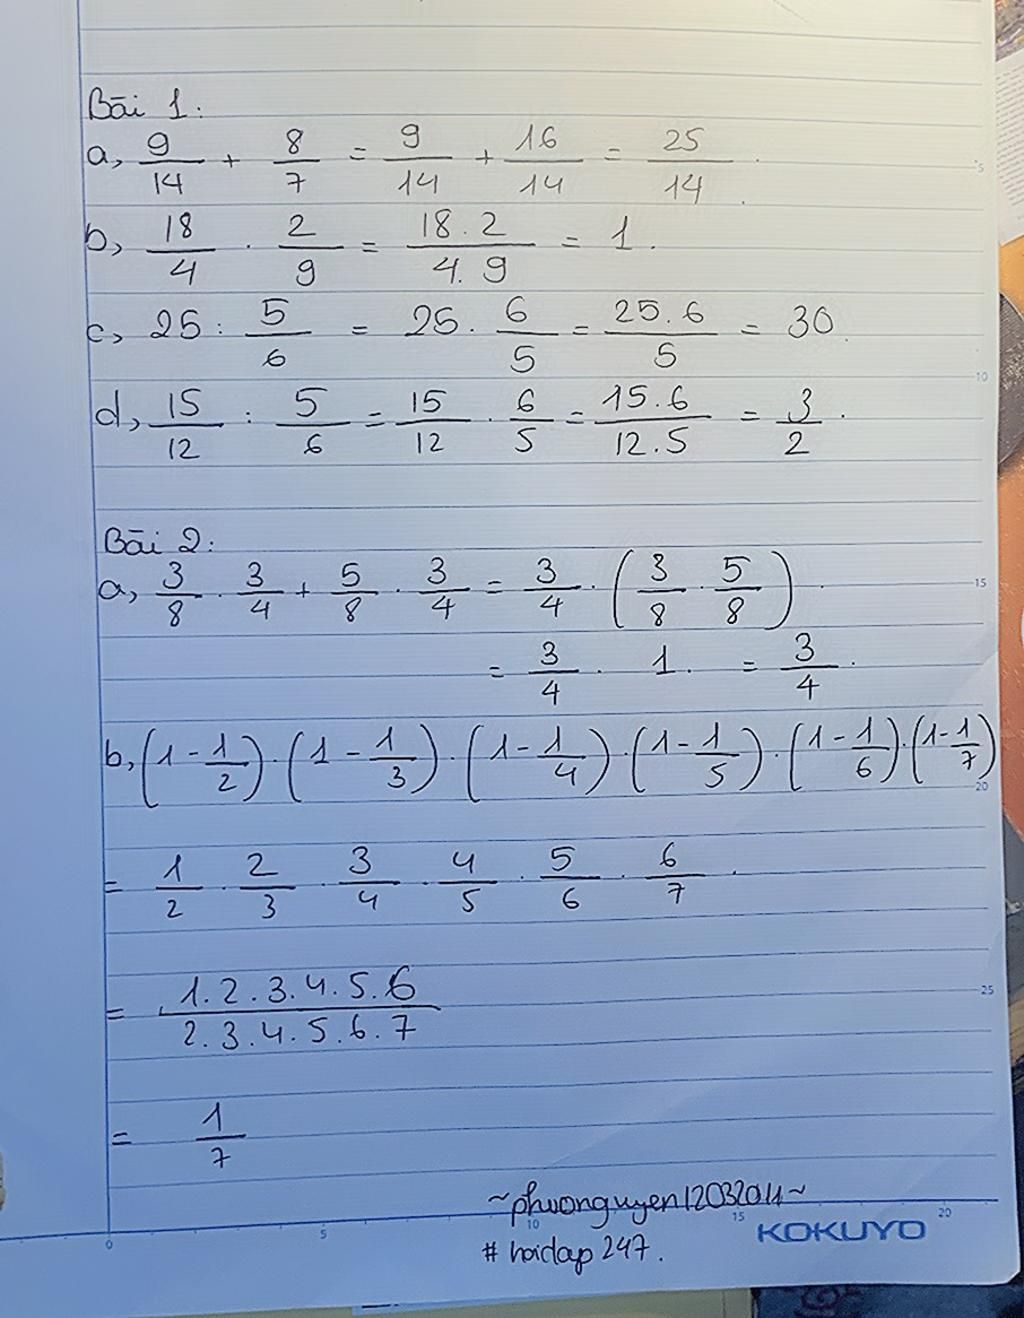 Bài 1:
a, 9/14 + 8/7 = 9/14 + 16/14 = 25/14.
b, 18/4 . 2/9 = 18.2/4.9 = 1.
c, 25 : 5/6 = 25 . 6/5 = 25.6/5 = 30.
d, 15/12 : 5/6 = 15/12 . 6/5 = 15.6/12.5 = 3/2.
Bài 2:
a, 3/8 . 3/4 + 5/8 . 3/4 = 3/4 . (3/8 . 5/8).
= 3/4 . 1. = 3/4.
b, (1 - 1/2) . (1 - 1/3) . (1 - 1/4) . (1 - 1/5) . (1 - 1/6) . (1 - 1/7)
= 1/2 . 2/3 . 3/4 . 4/5 . 5/6 . 6/7.
= 1.2.3.4.5.6/2.3.4.5.6.7
= 1/7
~phuonguyen12032011~
# hoidap 247.
KOKUYO
5
10
15
20
25
0 5 10 15 20